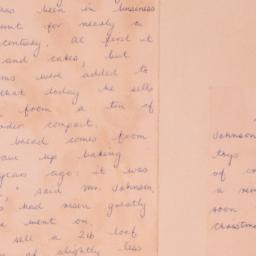 has been in business
unt for nearly a
century. At first it
and cakes, but
ms were added to
that today he sells
from a tin of
wder compact.
bread comes from
ave up baking
years ago: it was
," said Mr. Johnson,
s had risen greatly
e went on.
sell a 2lb loaf
of slightly less
Johnson
toys
of co
a new
soon
Christma